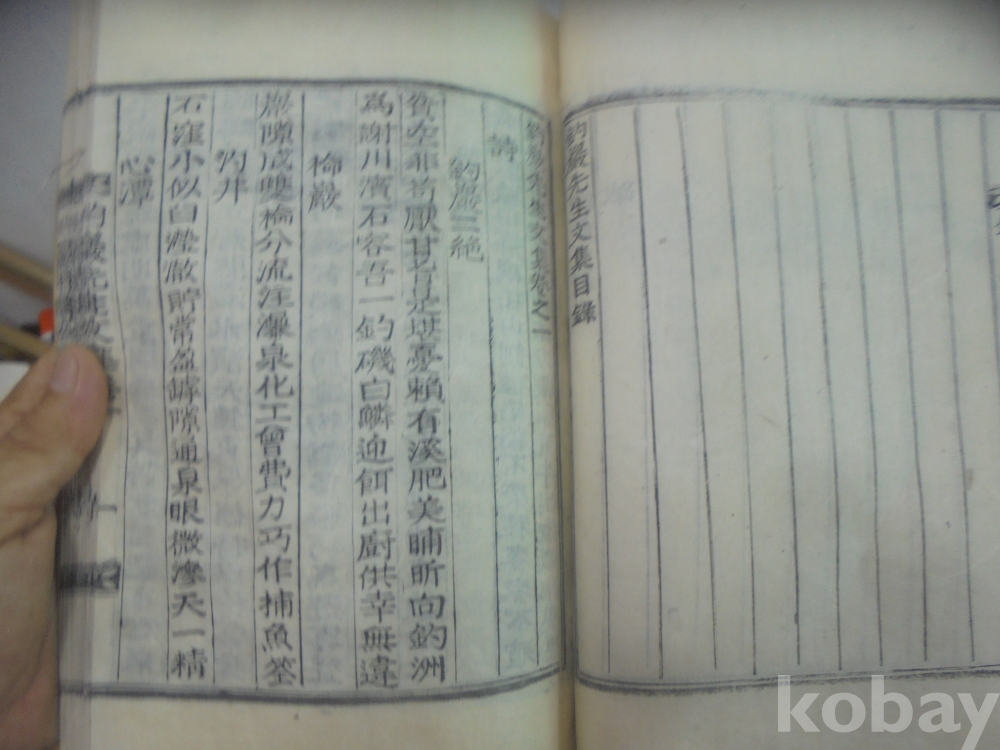 釣巖先生文集目錄
釣巖先生文集卷之一
詩
釣巖二絶
貧空非苟厭甘旨是堪憂賴有溪肥美晡昕向釣洲
爲謝川濱石容吾一釣磯白鱗迎餌出廚供幸無違
槍巖
巖隙成雙槍分流注瀑泉化工曾費力巧作捕魚筌
汋井
石窪小似臼瀅澈貯常盈罅隙通泉眼微滲天一精
心潭
kobay